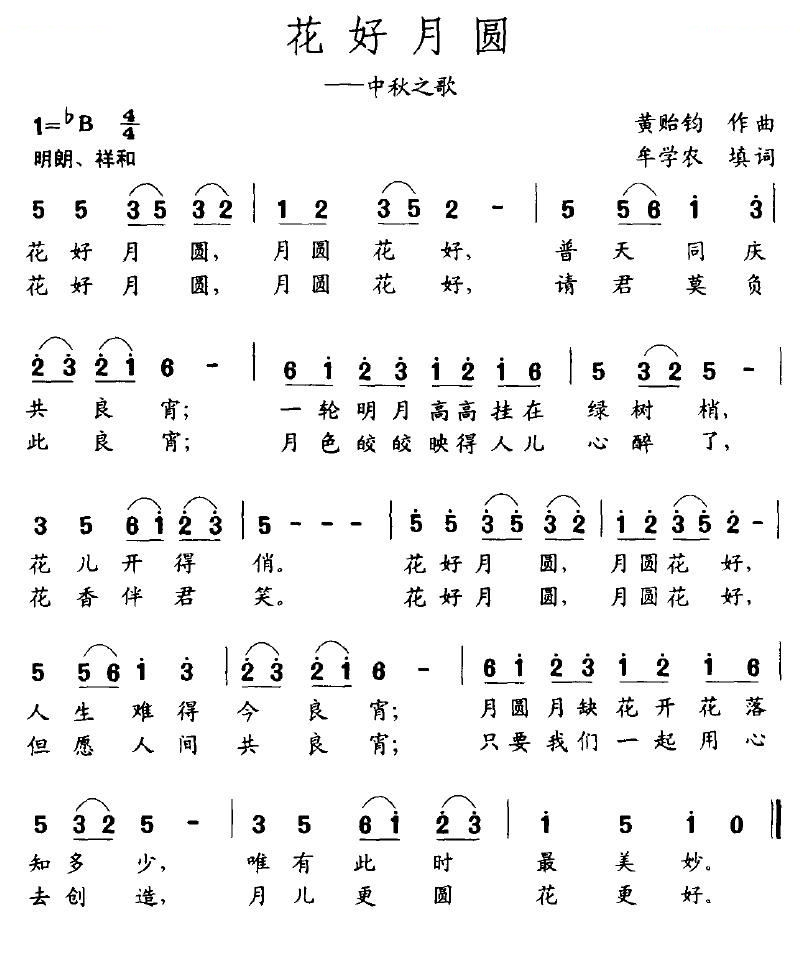 花好月圆
——中秋之歌
1=♭B 4/4 黄贻钧 作曲
明朗、祥和 牟学农 填词
5 5 3 5 3 2 | 1 2 3 5 2 - | 5 5 6 i 3̇ |
花 好 月 圆, 月 圆 花 好, 普 天 同 庆
花 好 月 圆, 月 圆 花 好, 请 君 莫 负
2̇ 3̇ 2̇ i 6 - | 6 i 2̇ 3̇ i 2̇ i 6 | 5 3 2 5 - |
共 良 宵; 一 轮 明 月 高 高 挂 在 绿 树 梢,
此 良 宵; 月 色 皎 皎 映 得 人 儿 心 醉 了,
3 5 6 i 2̇ 3̇ | 5 - - - | 5̇ 5̇ 3̇ 5̇ 3̇ 2̇ | i 2̇ 3̇ 5̇ 2̇ - |
花 儿 开 得 俏。 花 好 月 圆, 月 圆 花 好,
花 香 伴 君 笑。 花 好 月 圆, 月 圆 花 好,
5 5 6 i 3̇ | 2̇ 3̇ 2̇ i 6 - | 6 i 2̇ 3̇ i 2̇ i 6 |
人 生 难 得 今 良 宵; 月 圆 月 缺 花 开 花 落
但 愿 人 间 共 良 宵; 只 要 我 们 一 起 用 心
5 3 2 5 - | 3 5 6 i 2̇ 3̇ | i 5 i 0 ‖
知 多 少, 唯 有 此 时 最 美 妙。
去 创 造, 月 儿 更 圆 花 更 好。